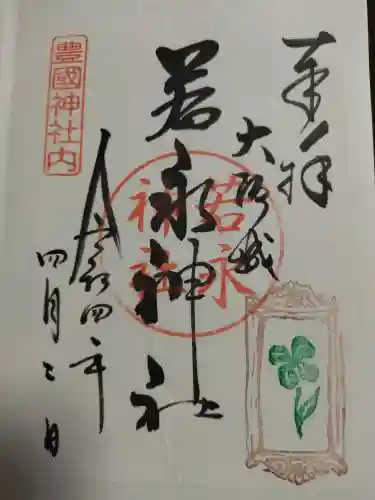 奉拝
大阪城
若永神社
若永
神社
豊國神社内
令和四年
四月三日